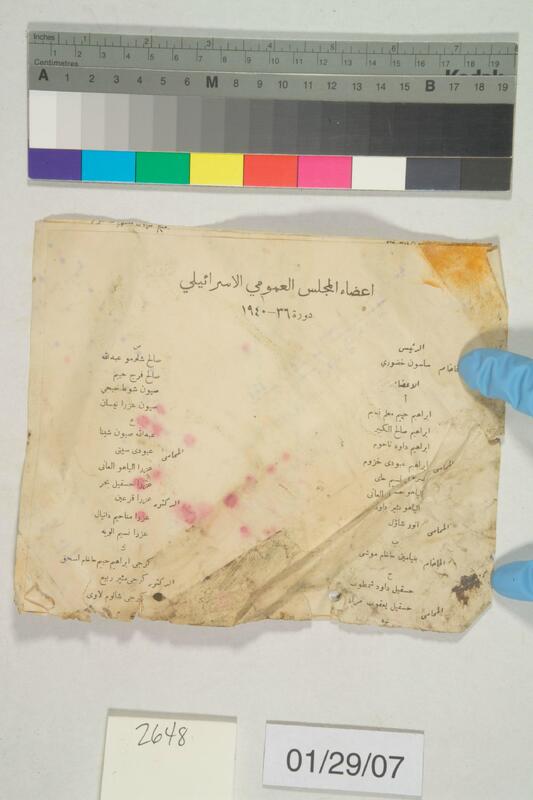 Inches 1 2 3 4 5 6 7 8
Centimetres 1 2 3 4 5 6 7 8 9 10 11 12 13 14 15 16 17 18 19
Kodak
A 1 2 3 4 5 6 M 8 9 10 11 12 13 14 15 B 17 18 19
اعضاء المجلس العمومي الاسرائيلي
دورة ٣٦-١٩٤٠
الرئيس
ساسون خضوري
الاعضاء
أ
ابراهيم حيم معلم
ابراهيم صالح الكبير
ابراهيم داود ناحوم
المحامي ابراهيم عبودي خزوم
الياهو العاني
الياهو داود
المحامي انور شاؤل
ب
بنيامين حاخام موشي
ح
حسقيل داود
المحامي حسقيل يعقوب
ص
صالح شلومو عبدالله
صالح فرج حيم
صيون شوط
صيون عزرا نيسان
ع
عبدالله صيون شينا
المحامي عبودي
عزرا الياهو العاني
عزرا حسقيل بحر
الدكتور عزرا
عزرا مناحيم دانيال
عزرا نسيم الويه
ك
كرجي ابراهيم حيم حاخام اسحق
الدكتور كرجي منير ربيع
كرجي شالوم لاوي
2648
01/29/07